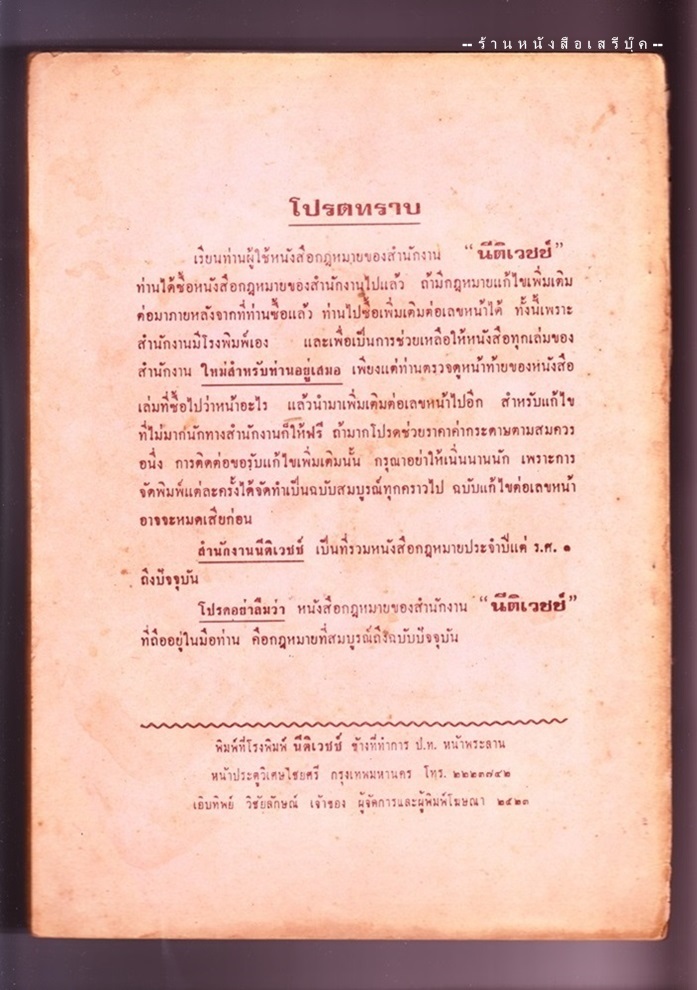 -- ร้านหนังสือเสรีบุ๊ค --
โปรดทราบ
เรียนท่านผู้ใช้หนังสือกฎหมายของสำนักงาน “นีติเวชช์”
ท่านได้ซื้อหนังสือกฎหมายของสำนักงานไปแล้ว ถ้ามีกฎหมายแก้ไขเพิ่มเติม
ต่อมาภายหลังจากที่ท่านซื้อแล้ว ท่านไปซื้อเพิ่มเติมต่อเลขหน้าได้ ทั้งนี้เพราะ
สำนักงานมีโรงพิมพ์เอง และเพื่อเป็นการช่วยเหลือให้หนังสือทุกเล่มของ
สำนักงาน ใหม่สำหรับท่านอยู่เสมอ เพียงแต่ท่านตรวจดูหน้าท้ายของหนังสือ
เล่มที่ซื้อไปว่าหน้าอะไร แล้วนำมาเพิ่มเติมต่อเลขหน้าไปอีก สำหรับแก้ไข
ที่ไม่มากนักทางสำนักงานก็ให้ฟรี ถ้ามากโปรดช่วยราคาค่ากระดาษตามสมควร
อนึ่ง การติดต่อขอรับแก้ไขเพิ่มเติมนั้น กรุณาอย่าให้เนิ่นนานนัก เพราะการ
จัดพิมพ์แต่ละครั้งได้จัดทำเป็นฉบับสมบูรณ์ทุกคราวไป ฉบับแก้ไขต่อเลขหน้า
อาจจะหมดเสียก่อน
สำนักงานนีติเวชช์ เป็นที่รวมหนังสือกฎหมายประจำปีแต่ ร.ศ. ๑
ถึงปัจจุบัน
โปรดอย่าลืมว่า หนังสือกฎหมายของสำนักงาน “นีติเวชช์”
ที่ถืออยู่ในมือท่าน คือกฎหมายที่สมบูรณ์ถึงฉบับปัจจุบัน
พิมพ์ที่โรงพิมพ์ นีติเวชช์ ข้างที่ทำการ ป.ท. หน้าพระลาน
หน้าประตูวิเศษไชยศรี กรุงเทพมหานคร โทร. ๒๒๒๓๗๔๒
เยิบทิพย์ วิชัยลักษณ์ เจ้าของ ผู้จัดการและผู้พิมพ์โฆษณา ๒๕๒๓